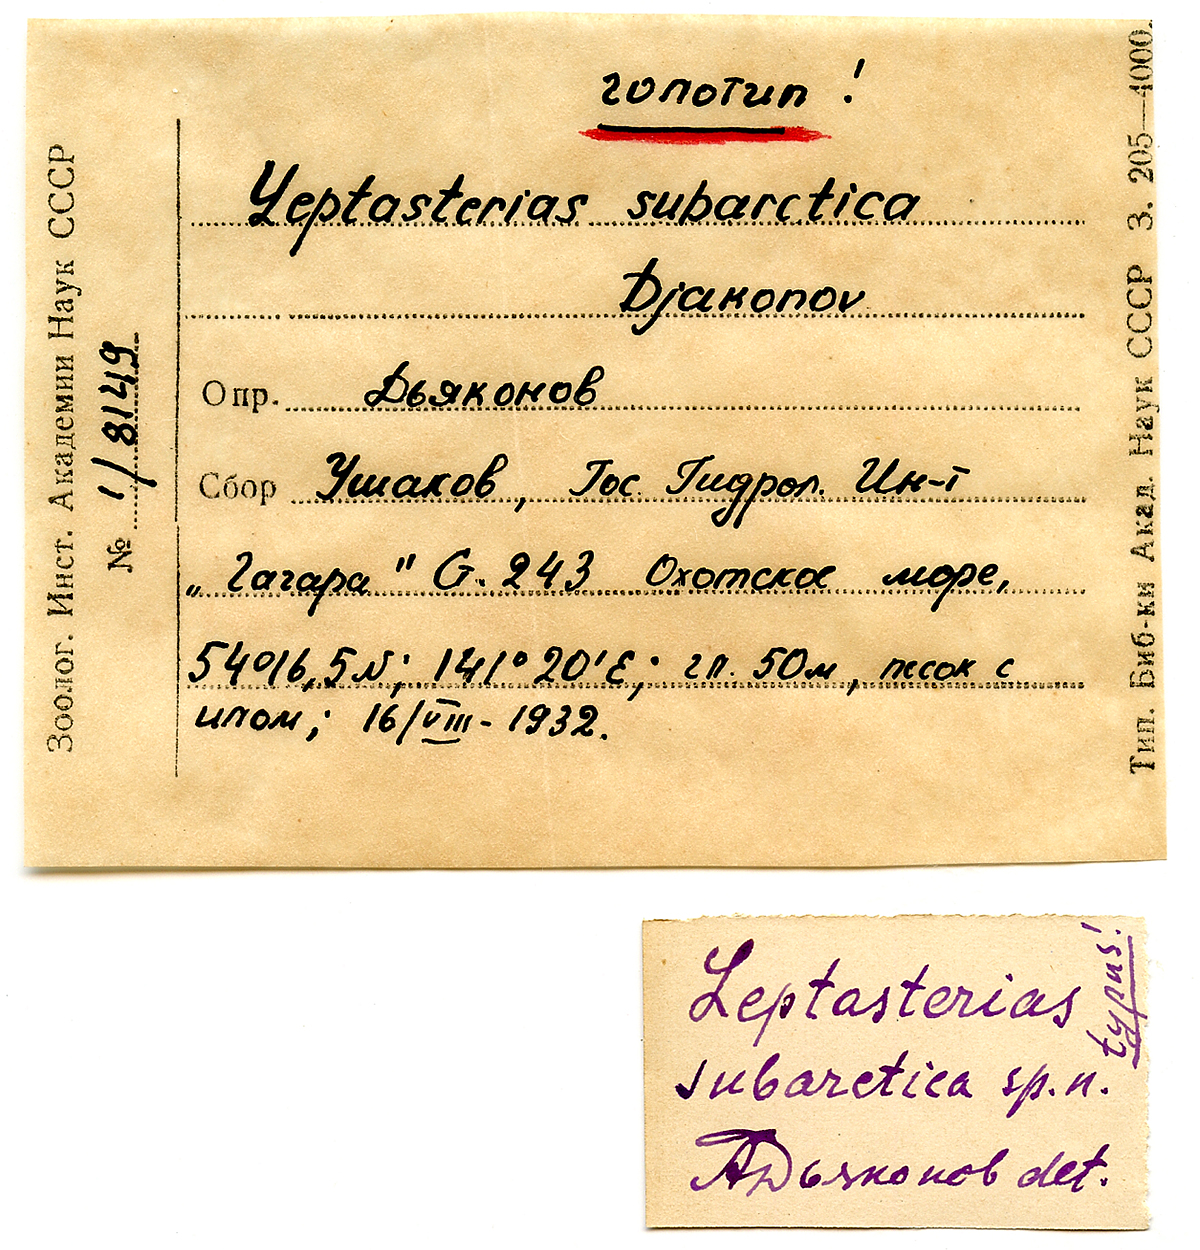 голотип!
Leptasterias subarctica
Djakonov
Опр. Дьяконов
Сбор Ушаков, Гос. Гидрол. Ин-т
„Гагара" G. 243 Охотское море,
54°16,5N; 141°20'E; гл. 50м, песок с
илом; 16/VIII-1932.
Зоолог. Инст. Академии Наук СССР
№ 1/8149
Тип. Биб-ки Акад. Наук СССР З. 205—4000.
Leptasterias
subarctica sp.n.
АДьяконов det.
typus!